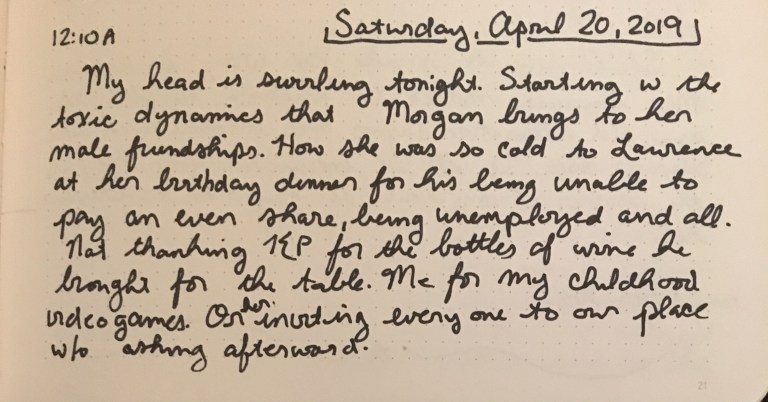 12:10A
Saturday, April 20, 2019
My head is swirling tonight. Starting w the
toxic dynamics that Morgan brings to her
male friendships. How she was so cold to Lawrence
at her birthday dinner for his being unable to
pay an even share, being unemployed and all.
Not thanking KP for the bottles of wine he
brought for the table. Me for my childhood
video games. Or her inviting every one to our place
w/o asking afterward.
21